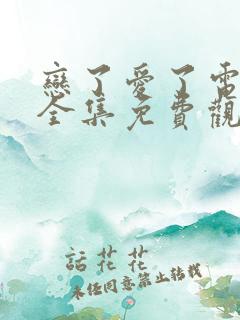 戀了愛了電
全集免費觀
話花花
未任同意禁止轉載